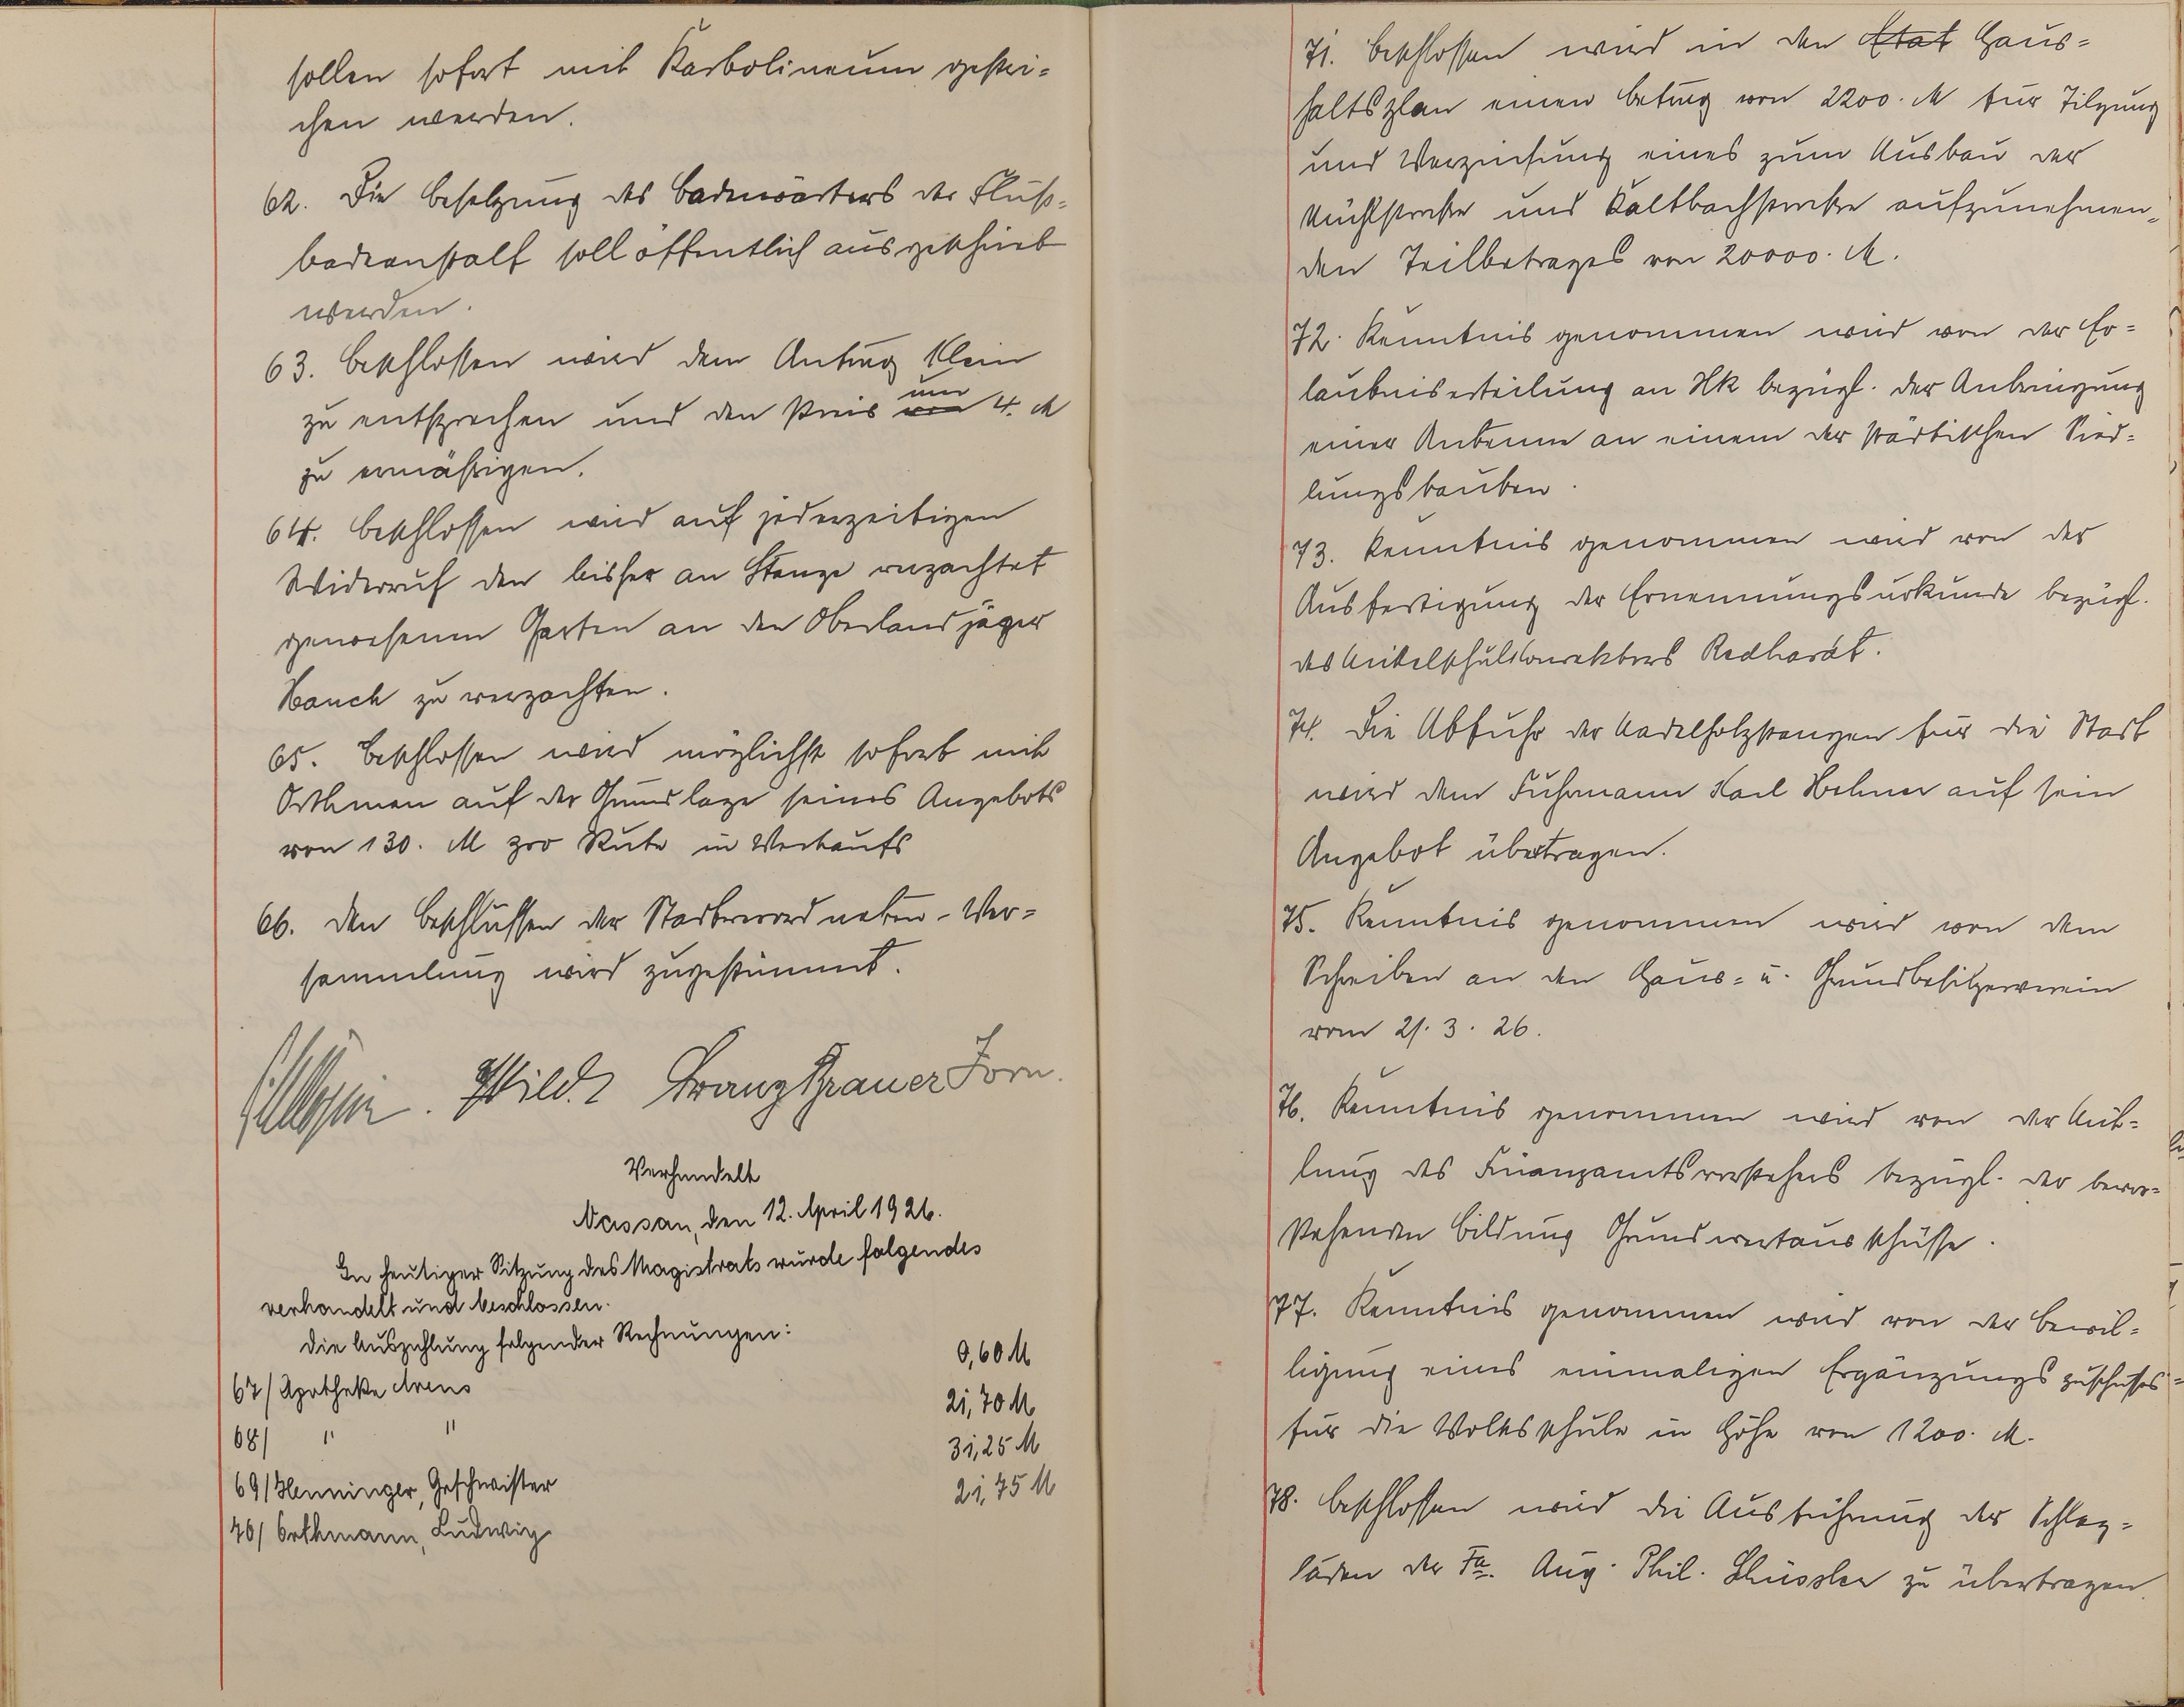 sollen sofort mit Karbolineum gestri-
chen werden.
62. Die Besetzung des Badewärters der Fluß-
badeanstalt soll öffentlich ausgeschrieb
werden.
63. Beschlossen wird dem Antrag Klein
zu entsprechen und den Preis von um 4. M
zu ermäßigen.
64. Beschlossen wird auf jederzeitigen
Widerruf den bisher an Stange verpachtet
gewesenen Garten an den Oberlandjäger
Hauch zu verpachten.
65. Beschlossen wird möglichst sofort mit
Orthmann auf der Grundlage seines Angebots
von 130. M pro Rute in Verkaufs
66. Den Beschlüssen der Stadtverordneten-Ver-
sammlung wird zugestimmt.
Wild. Franz Brauer Forn.
Verhandelt
Nassau, den 12. April 1926.
In heutiger Sitzung des Magistrats wurde folgendes
verhandelt und beschlossen.
Die Auszahlung folgender Rechnungen:
67/ Apotheke Arens 0,60 M
68/ " " 21,70 M
69/ Henninger, Geschwister 31,25 M
70/ Orthmann, Ludwig 21,75 M
71. Beschlossen wird in den Etat Haus-
haltsplan einen Betrag von 2200. M für Tilgung
und Verzinsung eines zum Ausbau der
Mühlstraße und Kaltbachstraße aufzunehmen-
den Teilbetrages von 20000. M.
72. Kenntnis genommen wird von der Er-
laubniserteilung an Hk bezügl. der Anbringung
einer Antenne an einem der städtischen Sied-
lungsbauten.
73. Kenntnis genommen wird von der
Ausfertigung der Ernennungsurkunde bezügl.
des Mittelschulkonrektors Redhardt.
74. Die Abfuhr der Nadelholzstangen für die Stadt
wird dem Fuhrmann Karl Hehner auf sein
Angebot übertragen.
75. Kenntnis genommen wird von dem
Schreiben an den Haus- u. Grundbesitzerverein
vom 21. 3. 26.
76. Kenntnis genommen wird von der Mit-
lung des Finanzamtsvorstehers bezügl. der bevor-
stehenden Bildung Grundwertausschüsse.
77. Kenntnis genommen wird von der Bewil-
ligung eines einmaligen Ergänzungszuschusses-
für die Volksschule in Höhe von 1200. M.
78. Beschlossen wird die Ausführung der Schlag-
läden der Fa. Aug. Phil. zu übertragen.